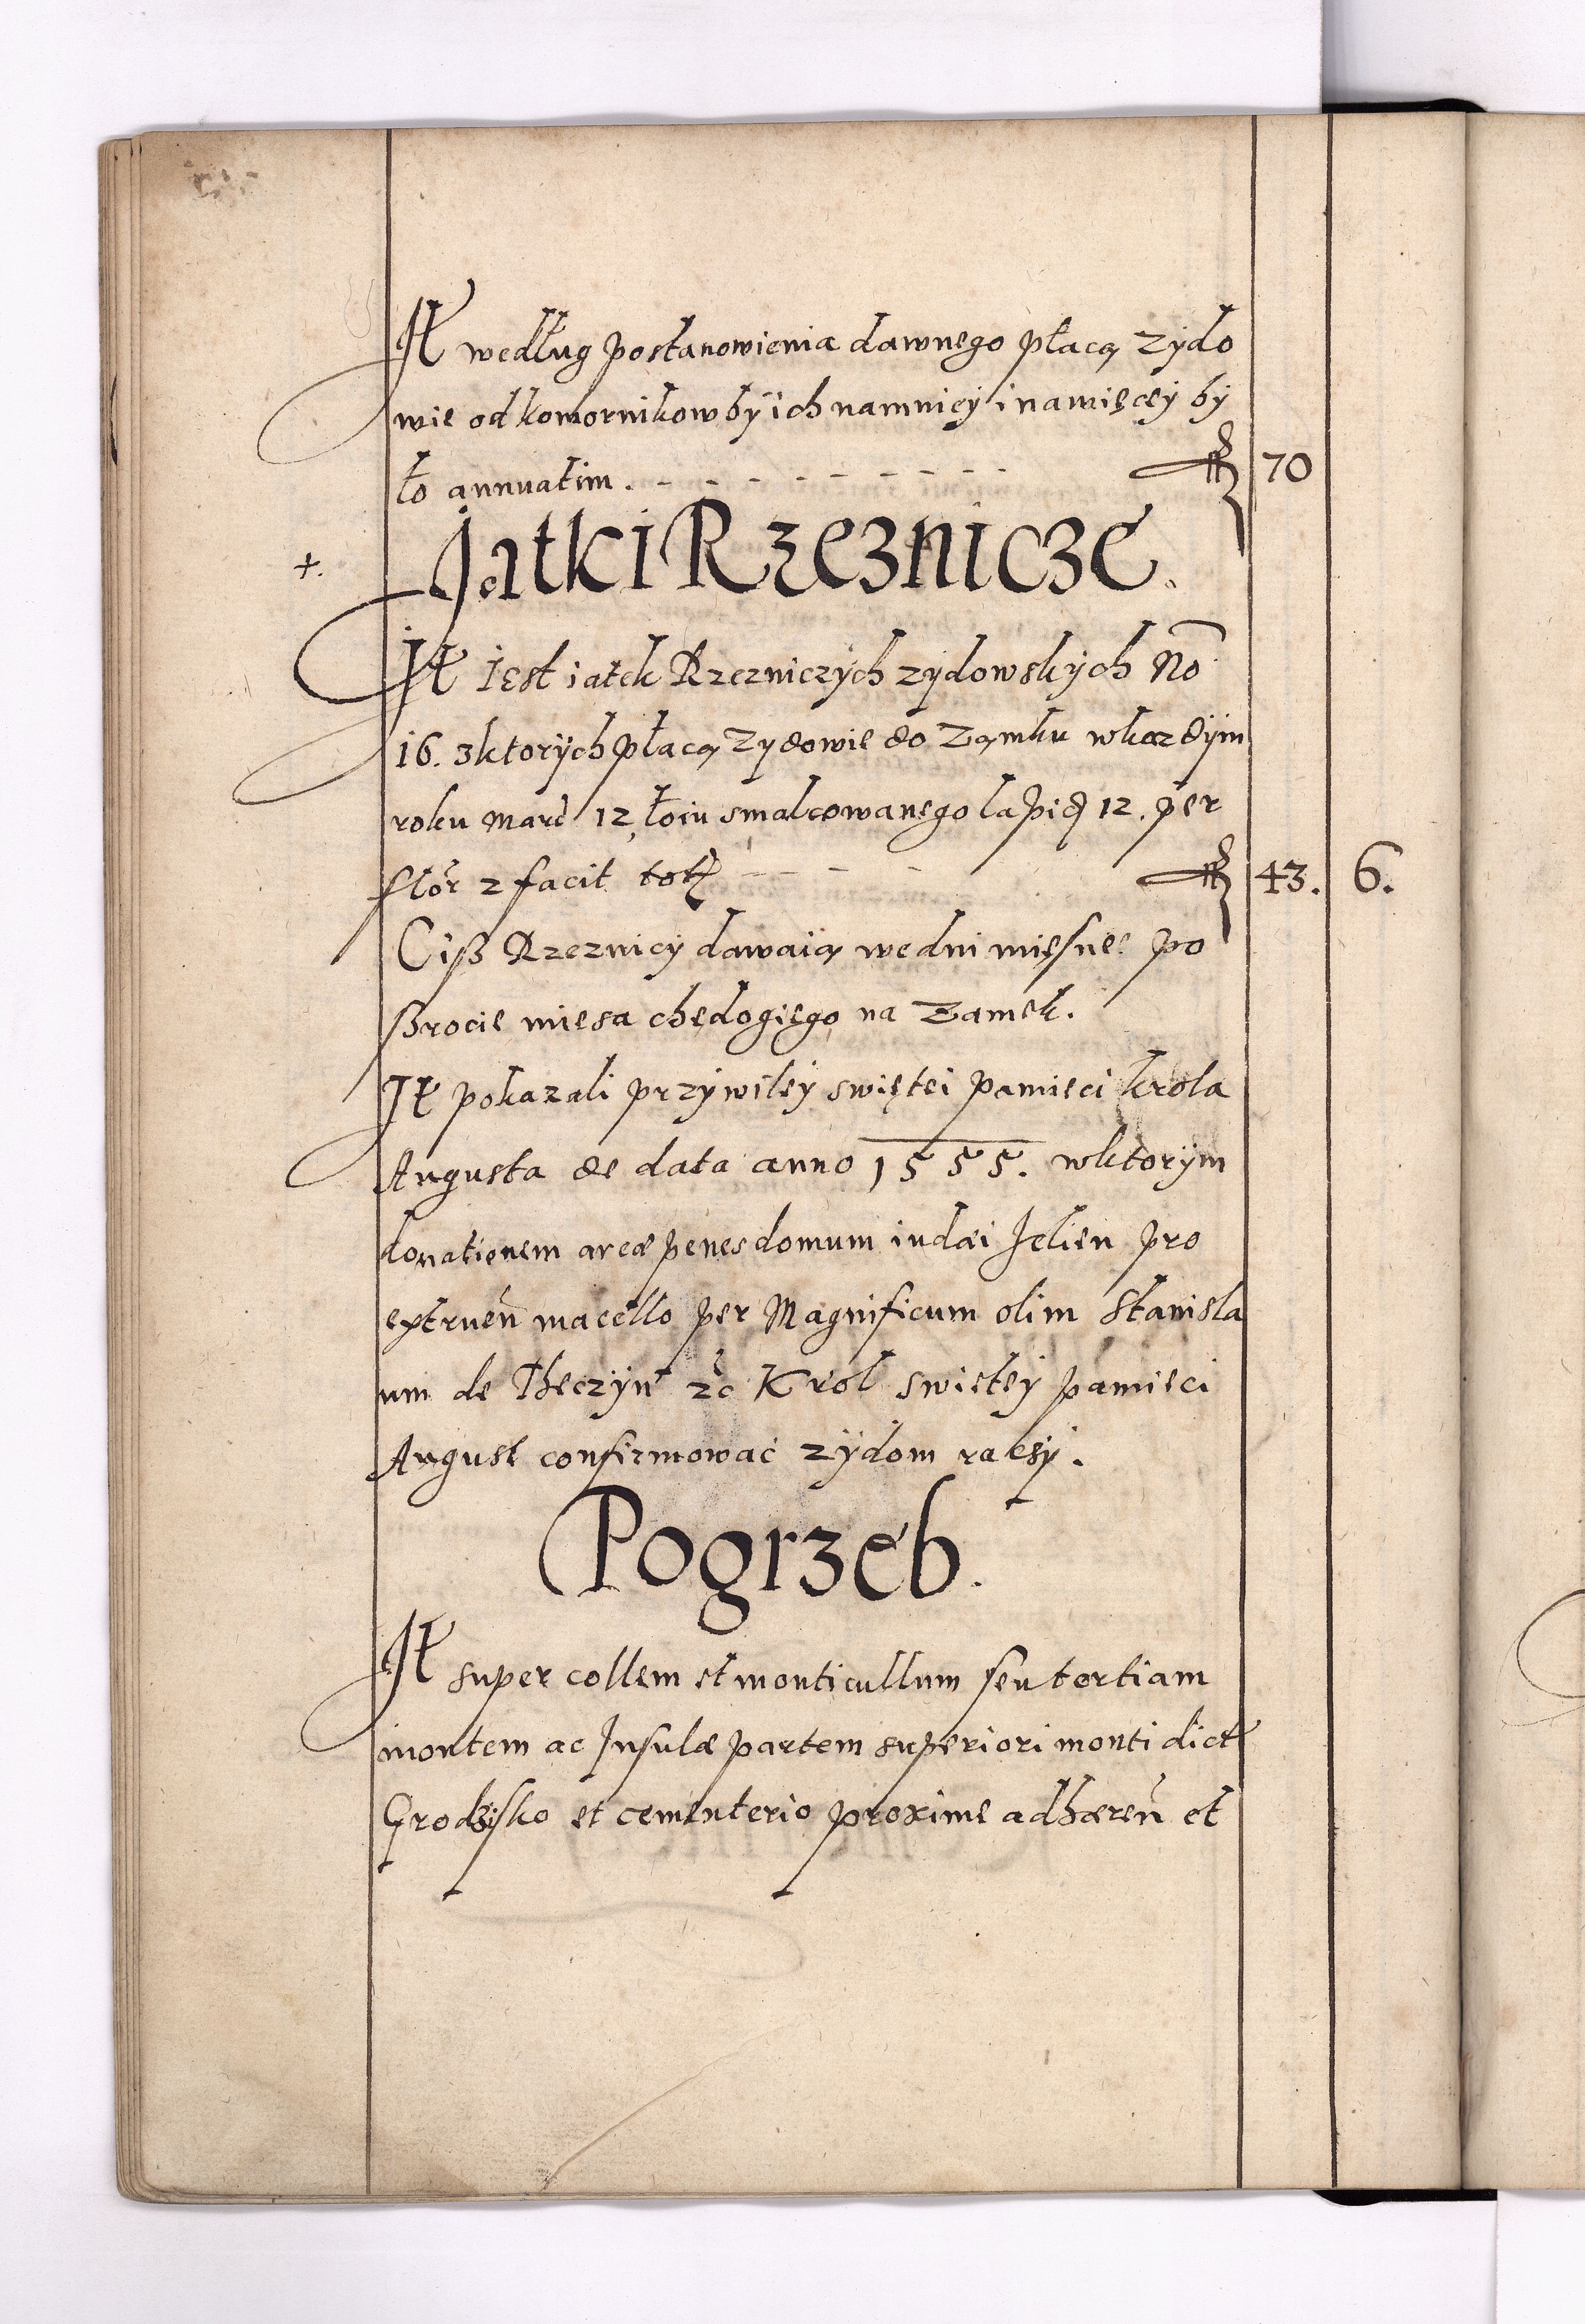 It według postanowienia dawnego płacą zydo
wie od komornikow by ich namnicy i nawięcey by
ło annuatim . - - - - - - - - - fl 70
Jatki Rzeznicze.
+.
It iest iatek Rzezniczych zydowskych No
16. z ktorych płacą zydowie do Zamku w kazdym
roku Marc 12 łoiu smalcowanego lapid 12. per
flor 2 facit tot - - - - fl 43. 6.
Ciß Rzeznicy dawaią we dni mięsne po
ßrocie miesa chędogiego na Zamek.
It pokazali przywiley swiętei pamieci krola
Augusta de data anno 1555. w ktorym
donationem areæ penes domum iudæi Jelien pro
extruen macello per Magnificum olim Stanisla
um de Theczyn zc Krol swietey pamieci
August confirmowac zydom raczy.
Pogrzeb.
It super collem et monticullum seu tertiam
montem ac Insulæ partem superiori monti dict
Grodzisko et cementerio proxime adhæren et